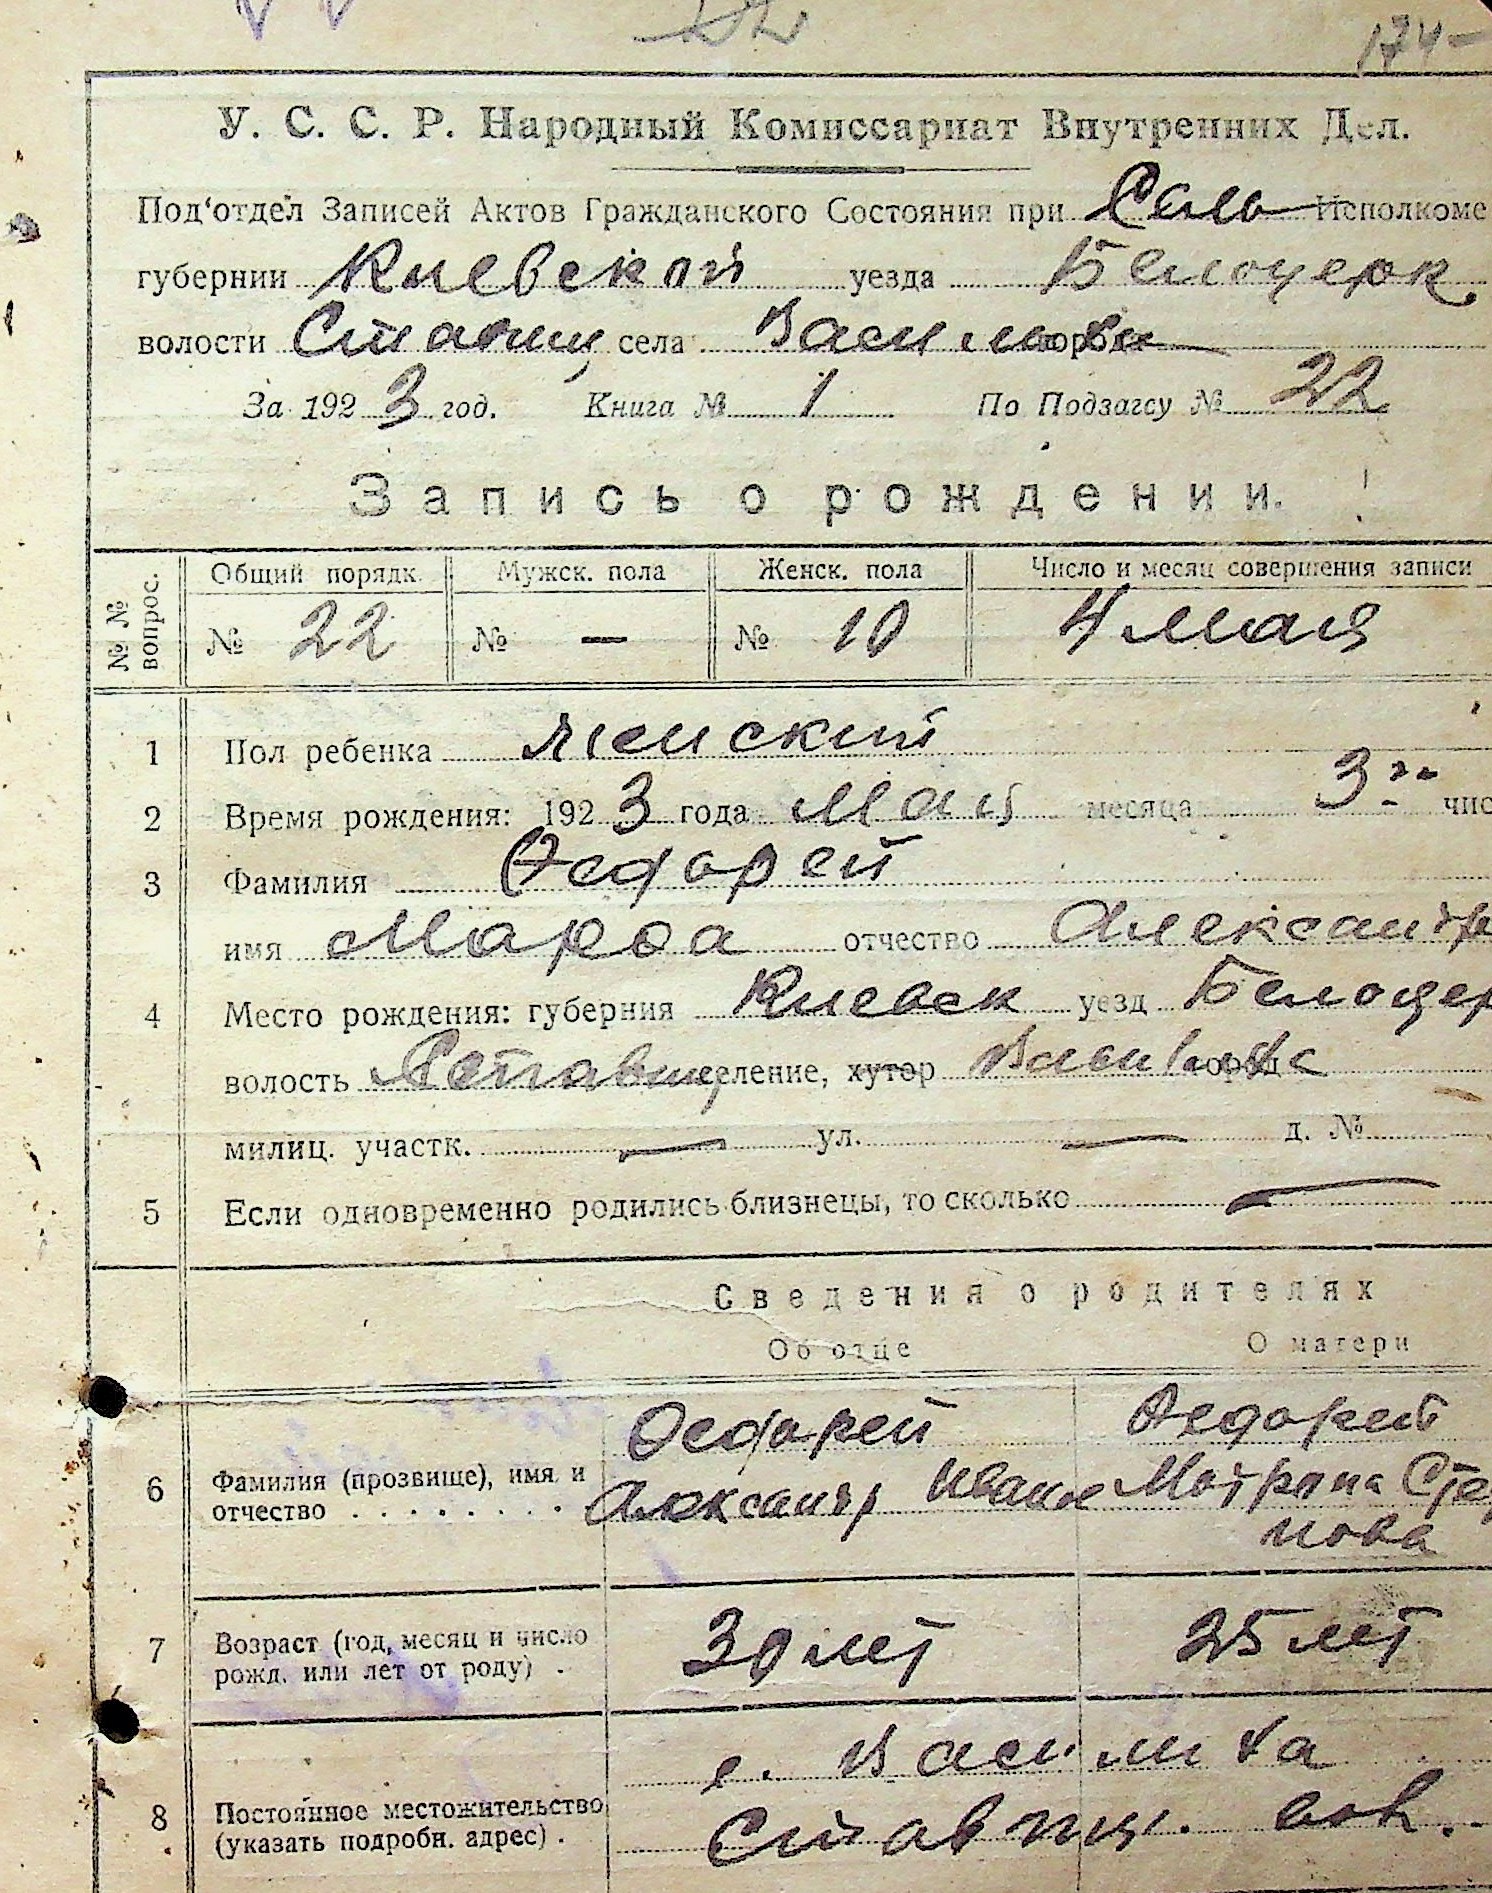 174
У. С. С. Р. Народный Комиссариат Внутренних Дел.
Под'отдел Записей Актов Гражданского Состояния при Сель Исполкоме
губернии Киевской уезда Белоцерк
волости Ставищ села Василивки
За 1923 год. Книга № 1 По Подзагсу № 22
Запись о рождении.
№ № вопрос. Общий порядк. Мужск. пола Женск. пола Число и месяц совершения записи
№ 22 № — № 10 4 мая
1 Пол ребенка женский
2 Время рождения: 1923 года Мая месяца 3го чис
3 Фамилия Федорей
имя Марфа отчество Александр
4 Место рождения: губерния Киевск уезд Белоцер
волость Ставищ селение, хутор
милиц. участк. — ул. — д. №
5 Если одновременно родились близнецы, то сколько —
Сведения о родителях
Об отце О матери
Федорей Федорей
6 Фамилия (прозвище), имя и Александр Иванов Мотрона Сте
отчество . . . . . . . . пова
7 Возраст (год, месяц и число 30 лет 25 лет
рожд. или лет от роду) .
с. Василивка
8 Постоянное местожительство Ставищ. вол.
(указать подробн. адрес) .